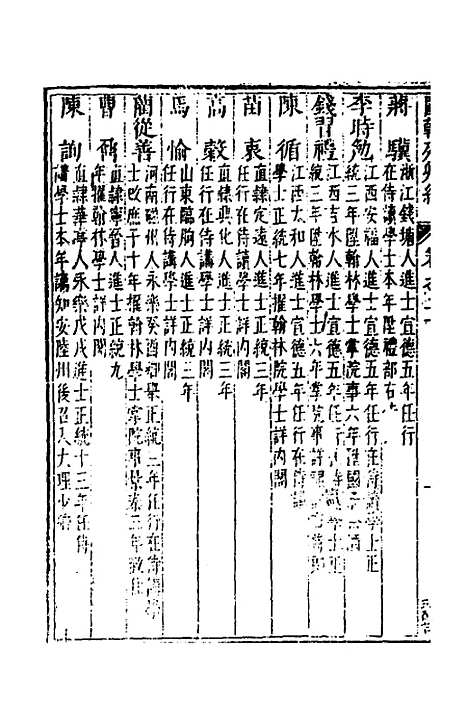 蔣驥 浙江錢塘人進士宣德五年任行
在侍講學士本年陞禮部右
李時勉 江西安福人進士宣德五年任行在侍讀學士正
統三年陞翰林學士掌院事六年陞國
錢習禮 江西吉水人進士宣德五年任行 侍讀學士正
統三年陞翰林學士六年掌院事
陳循 江西太和人進士宣德五年任行在侍講
學士正統七年擢翰林院學士詳內閣
苗衷 直隷定遠人進士正統三年
任行在侍讀學士詳內閣
高穀 直隷興化人進士正統三年
任行在侍講學士詳內閣
馬愉 山東臨朐人進士正統三年
任行在侍講學士詳內閣
藺從善 河南磁州人永樂癸酉鄉舉正統三年任行在侍講學
士 十年擢翰林學士掌院事景泰三年致仕
曹鼐 直隷寧晉人進士正統九
年擢翰林學士詳內閣
陳詢 直隷華亭人永樂戊戌進士正統十三年任侍
講學士本年謫知安陸州後召入大理少卿